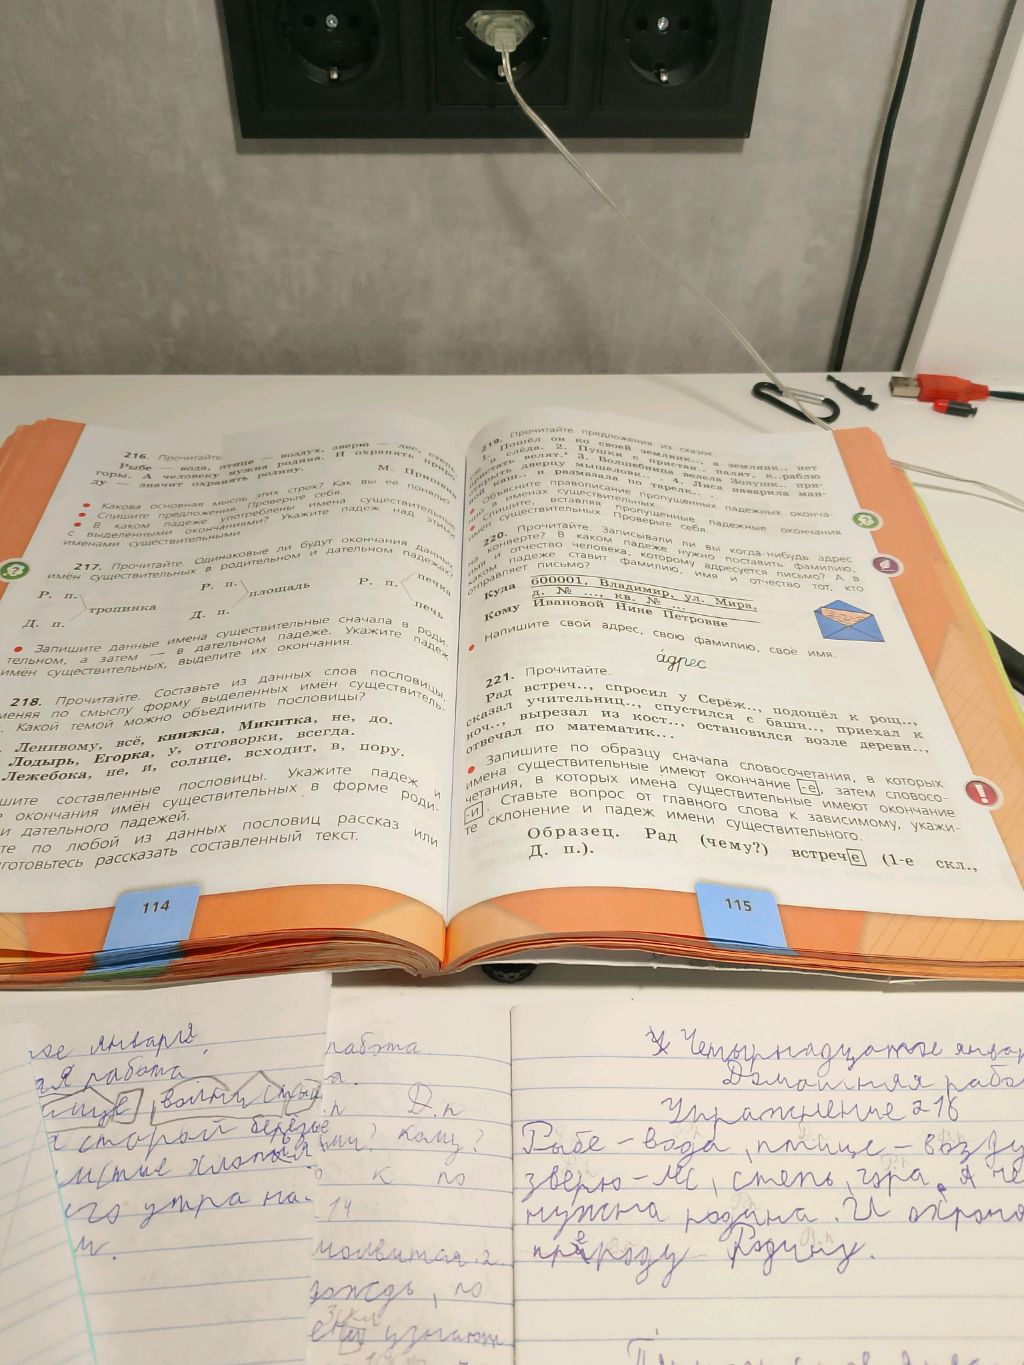 216. Прочитайте.
Рыбе — вода, птице — воздух, зверю — лес, степь,
горы. А человеку нужна родина. И охранять приро-
ду — значит охранять родину.
М. Пришвин
• Какова основная мысль этих строк? Как вы ее поняли?
• Спишите предложения. Проверьте себя.
• В каком падеже употреблены имена существительные
с выделенными окончаниями? Укажите падеж над этими
именами существительными.
217. Прочитайте. Одинаковые ли будут окончания данных
имён существительных в родительном и дательном падежах?
Р. п.
тропинка
Д. п.
Р. п.
площадь
Д. п.
Р. п.
печка
печь
• Запишите данные имена существительные сначала в роди-
тельном, а затем — в дательном падеже. Укажите падеж
имён существительных, выделите их окончания.
218. Прочитайте. Составьте из данных слов пословицы,
меняя по смыслу форму выделенных имён существитель-
Какой темой можно объединить пословицы?
Ленивому, всё, книжка, Микитка, не, до.
Лодырь, Егорка, у, отговорки, всегда.
Лежебока, не, и, солнце, всходит, в, пору.
шите составленные пословицы. Укажите падеж и
окончания имён существительных в форме роди-
и дательного падежей.
те по любой из данных пословиц рассказ или
готовьтесь рассказать составленный текст.
114
219. Прочитайте предложения из сказок.
1. Пошёл он ко своей землянк.., а землянк.. нет
и следа. 2. Пушки с пристан.. палят, к..раблю
пристать велят. 3. Волшебница велела Золушк.. при-
открыть дверцу мышеловк.. . 4. Лиса наварила ман-
ной каш.. и размазала по тарелк.. .
• Объясните правописание пропущенных падежных оконча-
ний в именах существительных.
• Спишите, вставляя пропущенные падежные окончания
имён существительных. Проверьте себя.
220. Прочитайте. Записывали ли вы когда-нибудь адрес
на конверте? В каком падеже нужно поставить фамилию,
имя и отчество человека, которому адресуется письмо? А в
каком падеже ставит фамилию, имя и отчество тот, кто
отправляет письмо?
Куда 600001, Владимир, ул. Мира,
д. № ..., кв. № ...
Кому Ивановой Нине Петровне
• Напишите свой адрес, свою фамилию, своё имя.
а́дрес
221. Прочитайте.
Рад встреч.., спросил у Серёж.., подошёл к рощ..,
сказал учительниц.., спустился с башн.., приехал к
ноч.., вырезал из кост.., остановился возле деревн..,
отвечал по математик.. .
• Запишите по образцу сначала словосочетания, в которых
имена существительные имеют окончание -е, затем словосо-
четания, в которых имена существительные имеют окончание
-и. Ставьте вопрос от главного слова к зависимому, укажи-
те склонение и падеж имени существительного.
Образец. Рад (чему?) встрече (1-е скл.,
Д. п.).
115
ое января
я работа
волны
старой берёзы
истые хлопья
его утра на-
м.
работа
а.
.п Д.п
кому?
к по
14
молвится. 2.
дождь, по
узнают
Четырнадцатое январ
Домашняя рабо
Упражнение 216
Рыбе – вода, птице – возду
зверю – лес, степь, гора. А че
нужна родина. И охраня
природу Родину.